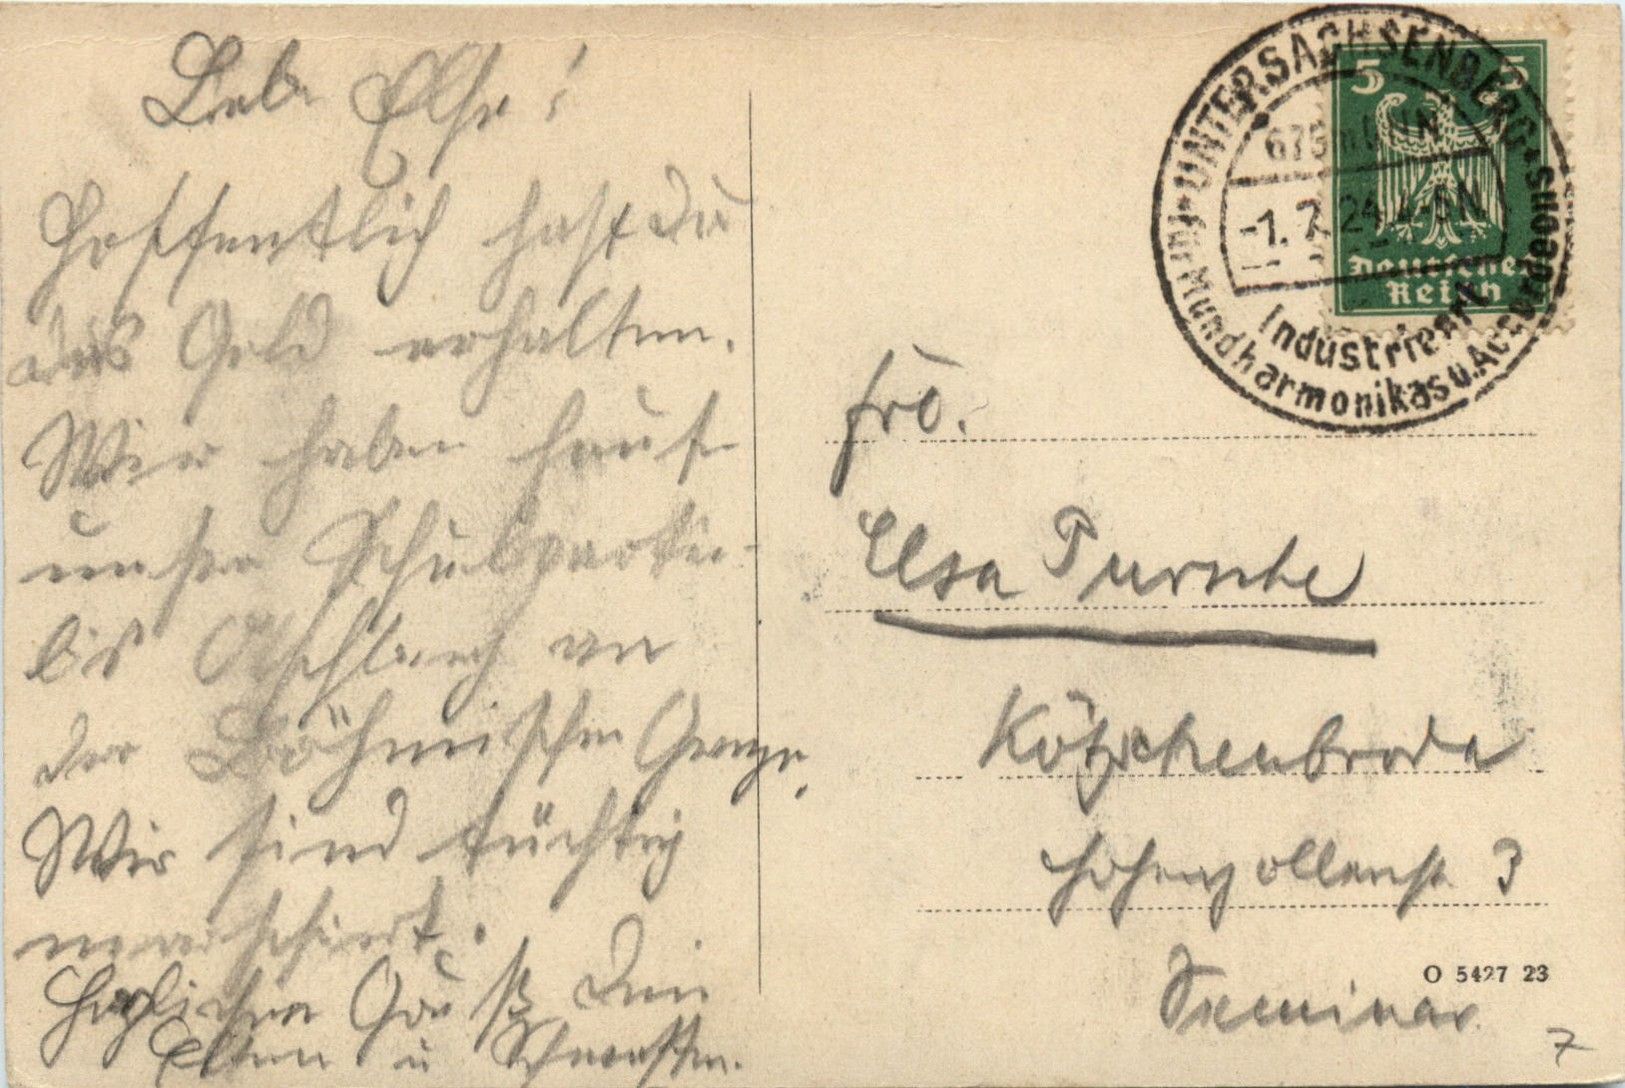 Liebe Else!
Hoffentlich hast du
das Geld erhalten.
Wir haben heute
unsere Schulpartie
bis Aschberg an
der Böhmischen Grenze.
Wir sind tüchtig
marschiert.
Herzlichen Gruß Dein
Eltern u Schwestern.
UNTERSACHSENBERG
-1. 7. 24
Industrieort
für Mundharmonikas u. Accordeons
5 5
Deutsches
Reich
Frl.
Elsa Pursche
Kötzschenbroda
Hohenzollernst 3
Seminar
O 5427 23
7